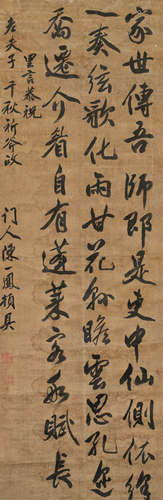 家世傳吾師即是史中仙側依絳
一奏絃歌化雨甘花縣瞻雲思孔邇
喬遷介眉自有蓬萊客永賦長
里言恭祝
老夫子千秋祈政
门人陳一鳳頓具